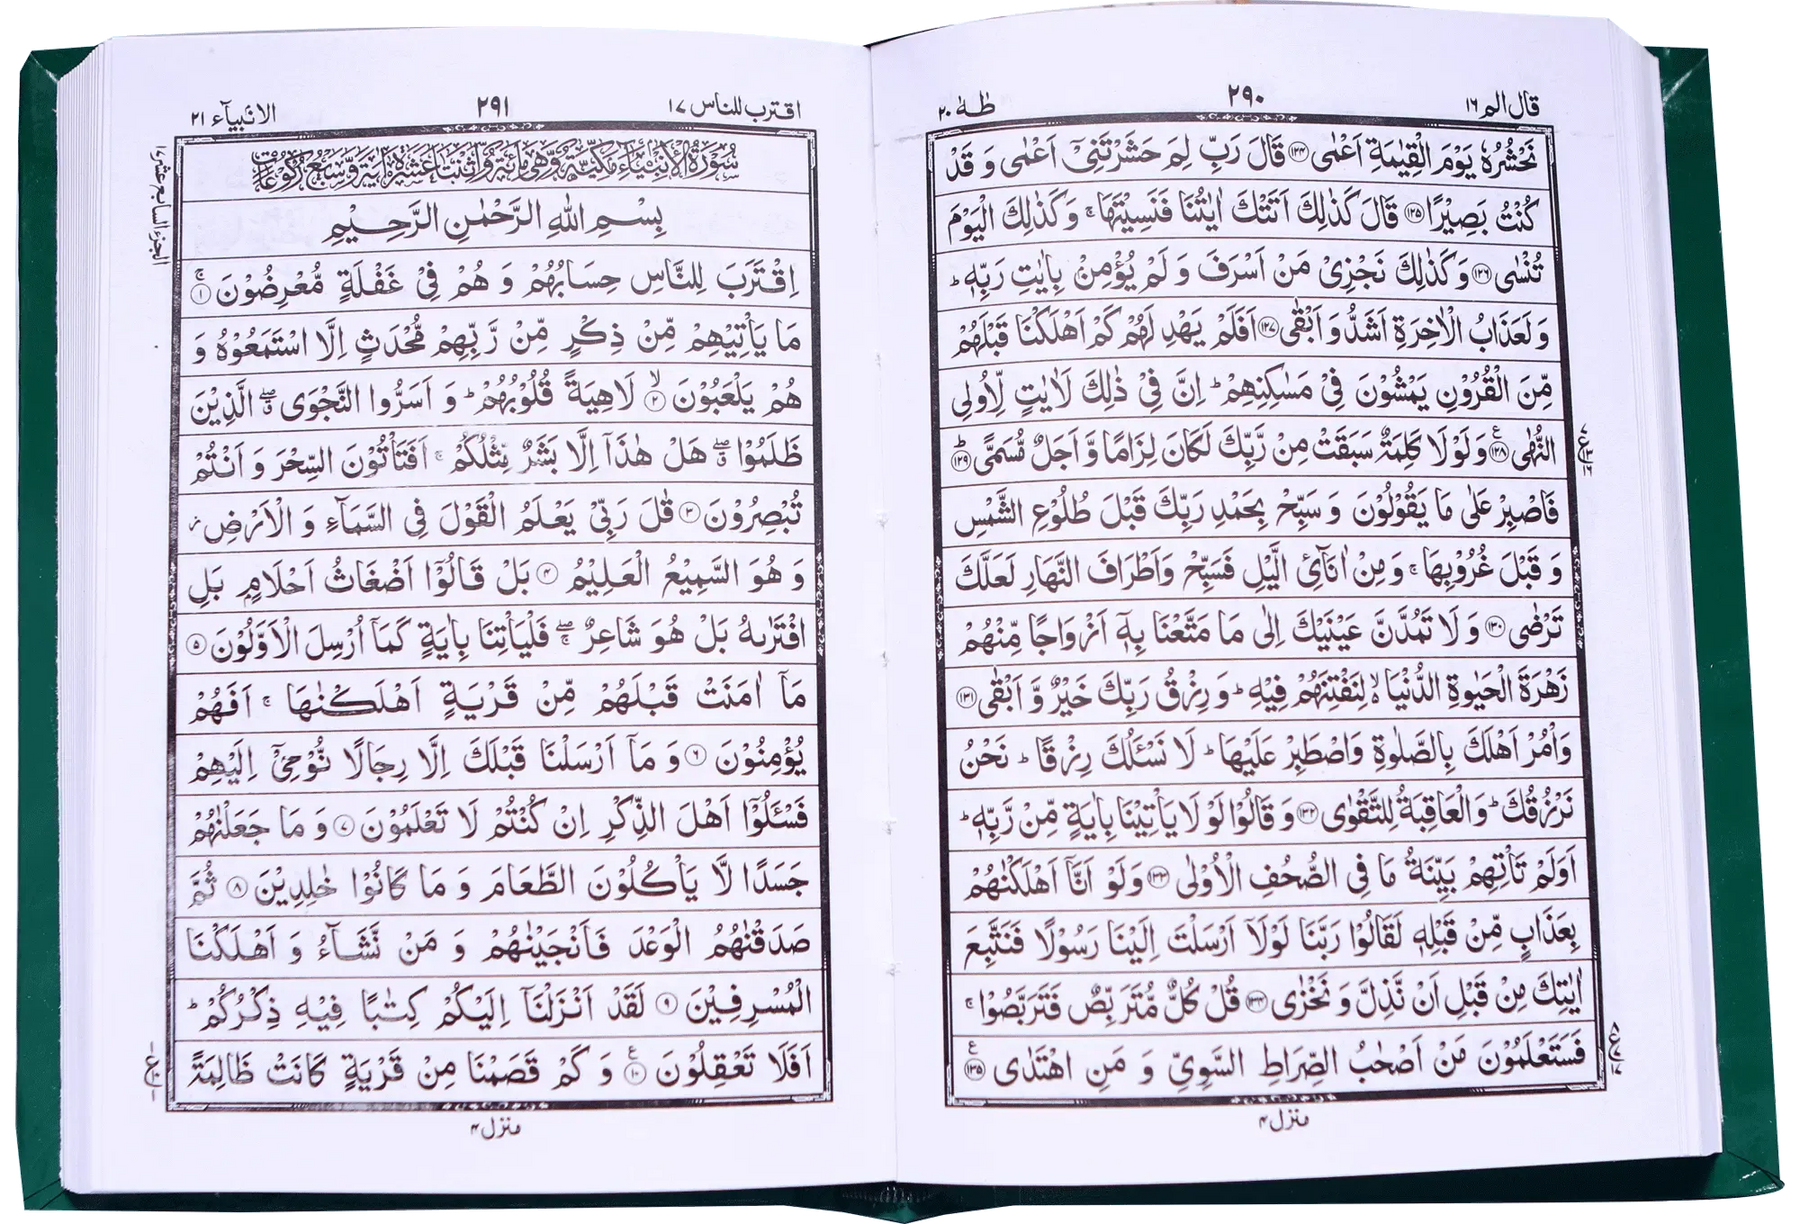 قال الم ١٦
٢٩٠
طٰهٰ ٢٠
نَحْشُرُهٗ يَوْمَ الْقِيٰمَةِ اَعْمٰى ﴿١٢٤﴾ قَالَ رَبِّ لِمَ حَشَرْتَنِىْٓ اَعْمٰى وَ قَدْ
كُنْتُ بَصِيْرًا ﴿١٢٥﴾ قَالَ كَذٰلِكَ اَتَتْكَ اٰيٰتُنَا فَنَسِيْتَهَا ۚ وَكَذٰلِكَ الْيَوْمَ
تُنْسٰى ﴿١٢٦﴾ وَ كَذٰلِكَ نَجْزِىْ مَنْ اَسْرَفَ وَ لَمْ يُؤْمِنْۢ بِاٰيٰتِ رَبِّهٖ ؕ
وَ لَعَذَابُ الْاٰخِرَةِ اَشَدُّ وَ اَبْقٰى ﴿١٢٧﴾ اَفَلَمْ يَهْدِ لَهُمْ كَمْ اَهْلَكْنَا قَبْلَهُمْ
مِّنَ الْقُرُوْنِ يَمْشُوْنَ فِىْ مَسٰكِنِهِمْ ؕ اِنَّ فِىْ ذٰلِكَ لَاٰيٰتٍ لِّاُولِى
النُّهٰى ﴿١٢٨﴾ وَ لَوْ لَا كَلِمَةٌ سَبَقَتْ مِنْ رَّبِّكَ لَكَانَ لِزَامًا وَّ اَجَلٌ مُّسَمًّى ﴿١٢٩﴾
فَاصْبِرْ عَلٰى مَا يَقُوْلُوْنَ وَ سَبِّحْ بِحَمْدِ رَبِّكَ قَبْلَ طُلُوْعِ الشَّمْسِ
وَ قَبْلَ غُرُوْبِهَا ۚ وَ مِنْ اٰنَآئِ الَّيْلِ فَسَبِّحْ وَاَطْرَافَ النَّهَارِ لَعَلَّكَ
تَرْضٰى ﴿١٣٠﴾ وَ لَا تَمُدَّنَّ عَيْنَيْكَ اِلٰى مَا مَتَّعْنَا بِهٖۤ اَزْوَاجًا مِّنْهُمْ
زَهْرَةَ الْحَيٰوةِ الدُّنْيَا ۙ لِنَفْتِنَهُمْ فِيْهِ ؕ وَ رِزْقُ رَبِّكَ خَيْرٌ وَّ اَبْقٰى ﴿١٣١﴾
وَاْمُرْ اَهْلَكَ بِالصَّلٰوةِ وَاصْطَبِرْ عَلَيْهَا ؕ لَا نَسْـَٔلُكَ رِزْقًا ؕ نَحْنُ
نَرْزُقُكَ ؕ وَالْعَاقِبَةُ لِلتَّقْوٰى ﴿١٣٢﴾ وَ قَالُوْا لَوْ لَا يَاْتِيْنَا بِاٰيَةٍ مِّنْ رَّبِّهٖ ؕ
اَوَلَمْ تَاْتِهِمْ بَيِّنَةُ مَا فِى الصُّحُفِ الْاُوْلٰى ﴿١٣٣﴾ وَلَوْ اَنَّاۤ اَهْلَكْنٰهُمْ
بِعَذَابٍ مِّنْ قَبْلِهٖ لَقَالُوْا رَبَّنَا لَوْلَاۤ اَرْسَلْتَ اِلَيْنَا رَسُوْلًا فَنَتَّبِعَ
اٰيٰتِكَ مِنْ قَبْلِ اَنْ نَّذِلَّ وَ نَخْزٰى ﴿١٣٤﴾ قُلْ كُلٌّ مُّتَرَبِّصٌ فَتَرَبَّصُوْا ۚ
فَسَتَعْلَمُوْنَ مَنْ اَصْحٰبُ الصِّرَاطِ السَّوِىِّ وَ مَنِ اهْتَدٰى ﴿١٣٥﴾
منزل ٤
اقترب للناس ١٧
٢٩١
الانبيآء ٢١
الجزء السابع عشر ١٧
سُوْرَةُ الْاَنْبِيَآءِ مَكِّيَّةٌ وَّهِىَ مِائَةٌ وَّاثْنَتَا عَشْرَةَ اٰيَةً وَّسَبْعُ رُكُوْعَاتٍ
بِسْمِ اللهِ الرَّحْمٰنِ الرَّحِيْمِ
اِقْتَرَبَ لِلنَّاسِ حِسَابُهُمْ وَ هُمْ فِىْ غَفْلَةٍ مُّعْرِضُوْنَ ۚ ﴿١﴾
مَا يَاْتِيْهِمْ مِّنْ ذِكْرٍ مِّنْ رَّبِّهِمْ مُّحْدَثٍ اِلَّا اسْتَمَعُوْهُ وَ
هُمْ يَلْعَبُوْنَ ۙ ﴿٢﴾ لَاهِيَةً قُلُوْبُهُمْ ؕ وَ اَسَرُّوا النَّجْوَى ۖ الَّذِيْنَ
ظَلَمُوْا ۖ هَلْ هٰذَاۤ اِلَّا بَشَرٌ مِّثْلُكُمْ ۚ اَفَتَاْتُوْنَ السِّحْرَ وَ اَنْتُمْ
تُبْصِرُوْنَ ﴿٣﴾ قٰلَ رَبِّىْ يَعْلَمُ الْقَوْلَ فِى السَّمَآءِ وَ الْاَرْضِ ؗ
وَ هُوَ السَّمِيْعُ الْعَلِيْمُ ﴿٤﴾ بَلْ قَالُوْۤا اَضْغَاثُ اَحْلَامٍۭ بَلِ
افْتَرٰىهُ بَلْ هُوَ شَاعِرٌ ۖۚ فَلْيَاْتِنَا بِاٰيَةٍ كَمَاۤ اُرْسِلَ الْاَوَّلُوْنَ ﴿٥﴾
مَاۤ اٰمَنَتْ قَبْلَهُمْ مِّنْ قَرْيَةٍ اَهْلَكْنٰهَا ۚ اَفَهُمْ
يُؤْمِنُوْنَ ﴿٦﴾ وَ مَاۤ اَرْسَلْنَا قَبْلَكَ اِلَّا رِجَالًا نُّوْحِىْۤ اِلَيْهِمْ
فَسْـَٔلُوْۤا اَهْلَ الذِّكْرِ اِنْ كُنْتُمْ لَا تَعْلَمُوْنَ ﴿٧﴾ وَ مَا جَعَلْنٰهُمْ
جَسَدًا لَّا يَاْكُلُوْنَ الطَّعَامَ وَ مَا كَانُوْا خٰلِدِيْنَ ﴿٨﴾ ثُمَّ
صَدَقْنٰهُمُ الْوَعْدَ فَاَنْجَيْنٰهُمْ وَ مَنْ نَّشَآءُ وَ اَهْلَكْنَا
الْمُسْرِفِيْنَ ﴿٩﴾ لَقَدْ اَنْزَلْنَاۤ اِلَيْكُمْ كِتٰبًا فِيْهِ ذِكْرُكُمْ ؕ
اَفَلَا تَعْقِلُوْنَ ﴿١٠﴾ وَ كَمْ قَصَمْنَا مِنْ قَرْيَةٍ كَانَتْ ظَالِمَةً
منزل ٤